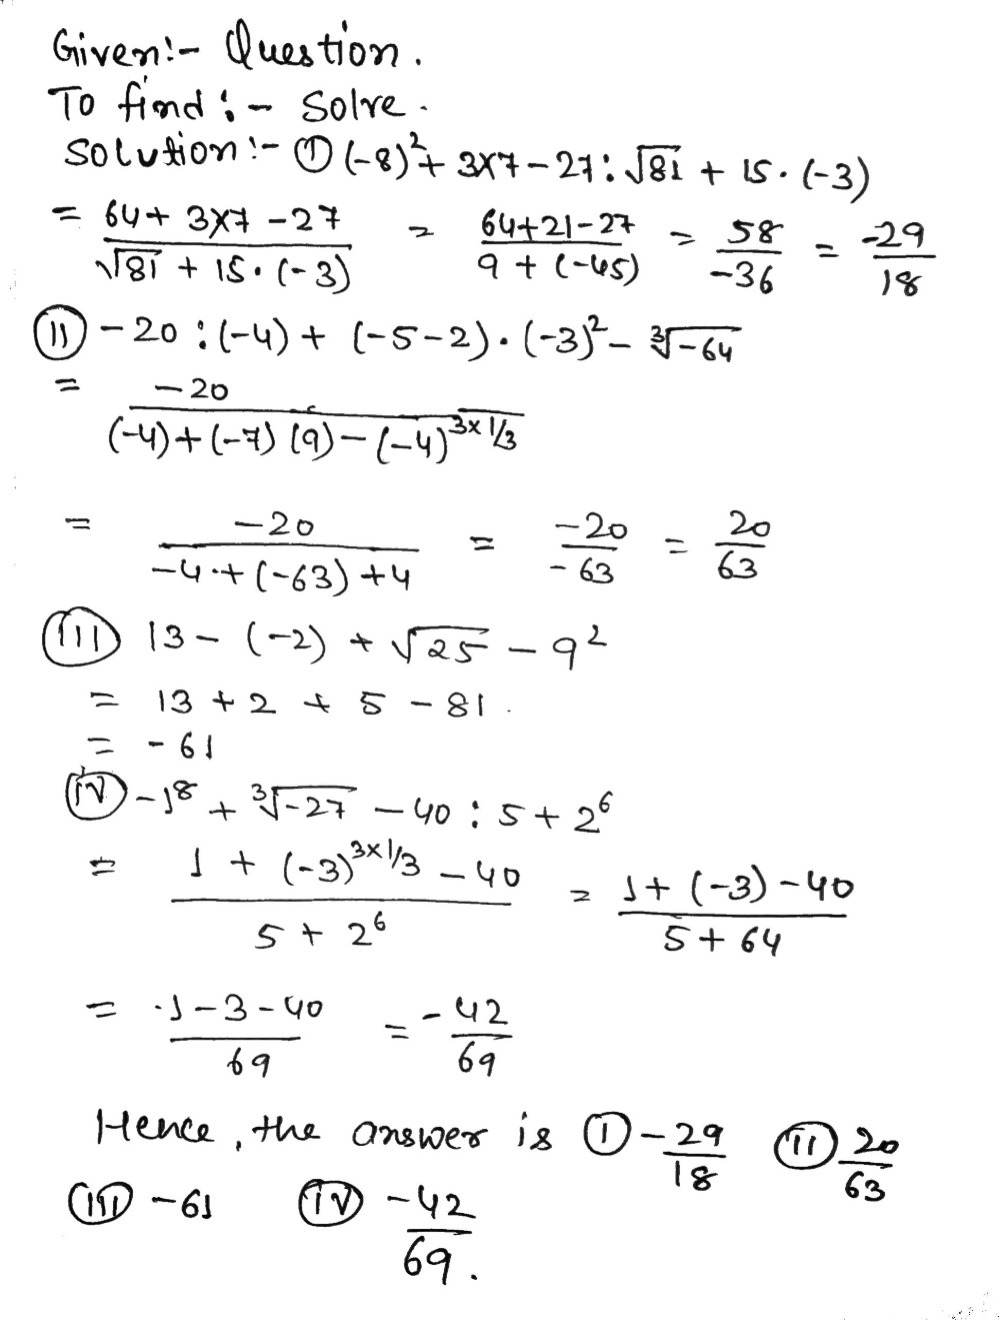 Given:- Question.
To find:- Solve.
Solution:- (I) (-8)² + 3×7 - 27 : √81 + 15 · (-3)
= (64 + 3×7 - 27)/(√81 + 15 · (-3)) = (64+21-27)/(9 + (-45)) = 58/-36 = -29/18
(II) -20 : (-4) + (-5-2) · (-3)² - ∛-64
= -20/((-4)+(-7)(9) - (-4)^(3×1/3))
= -20/(-4 + (-63) + 4) = -20/-63 = 20/63
(III) 13 - (-2) + √25 - 9²
= 13 + 2 + 5 - 81.
= -61
(iv) -1⁸ + ∛-27 - 40 : 5 + 2⁶
= (1 + (-3)^(3×1/3) - 40)/(5 + 2⁶) = (1 + (-3) - 40)/(5 + 64)
= (1-3-40)/69 = -42/69
Hence, the answer is (I) -29/18 (II) 20/63
(III) -61 (IV) -42/69.